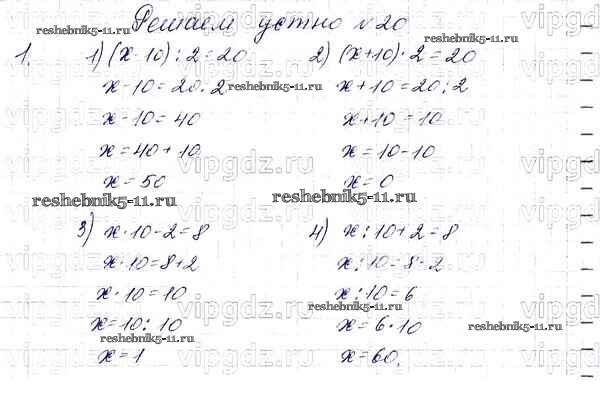 Решаем устно №20
1. 1) (x-10) : 2 = 20
x-10 = 20·2
x-10 = 40
x = 40+10
x = 50
2) (x+10)·2 = 20
x+10 = 20:2
x+10 = 10
x = 10-10
x = 0
3) x·10-2 = 8
x·10 = 8+2
x·10 = 10
x = 10:10
x = 1
4) x:10+2 = 8
x:10 = 8-2
x:10 = 6
x = 6·10
x = 60.
reshebnik5-11.ru
reshebnik5-11.ru
reshebnik5-11.ru
reshebnik5-11.ru
reshebnik5-11.ru
reshebnik5-11.ru
reshebnik5-11.ru
vipgdz.ru